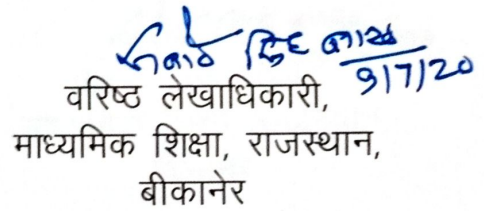 सिंह
9/7/20
वरिष्ठ लेखाधिकारी,
माध्यमिक शिक्षा, राजस्थान,
बीकानेर